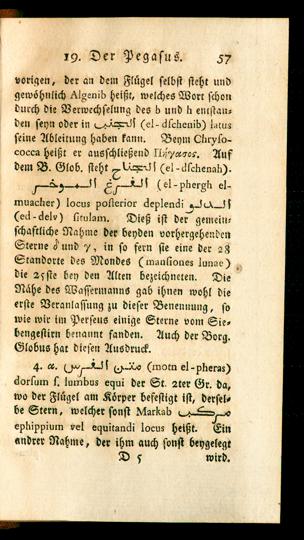 19. Der Pegasus. 57
vorigen, der an dem Flügel selbst steht und
gewöhnlich Algenib heißt, welches Wort schon
durch die Verwechselung des b und h entstan-
den seyn oder in الجنب (el-dschenib) latus
seine Ableitung haben kann. Beym Chryso-
cocca heißt er ausschließend Πήγασος. Auf
dem B. Glob. steht الجناح (el-dschenah).
الفرغ الموخر (el-phergh el-
muacher) locus posterior deplendi الدلو
(ed-delv) situlam. Dieß ist der gemein-
schaftliche Nahme der beyden vorhergehenden
Sterne δ und γ, in so fern sie eine der 28
Standorte des Mondes (mansiones lunae)
die 25ste bey den Alten bezeichneten. Die
Nähe des Wassermanns gab ihnen wohl die
erste Veranlassung zu dieser Benennung, so
wie wir im Perseus einige Sterne vom Sie-
bengestirn benannt fanden. Auch der Borg.
Globus hat diesen Ausdruck.
4. α. متن الفرس (motn el-pheras)
dorsum s. lumbus equi der St. 2ter Gr. da,
wo der Flügel am Körper befestigt ist, dersel-
be Stern, welcher sonst Markab مركب
ephippium vel equitandi locus heißt. Ein
andrer Nahme, der ihm auch sonst beygelegt
D 5 wird.